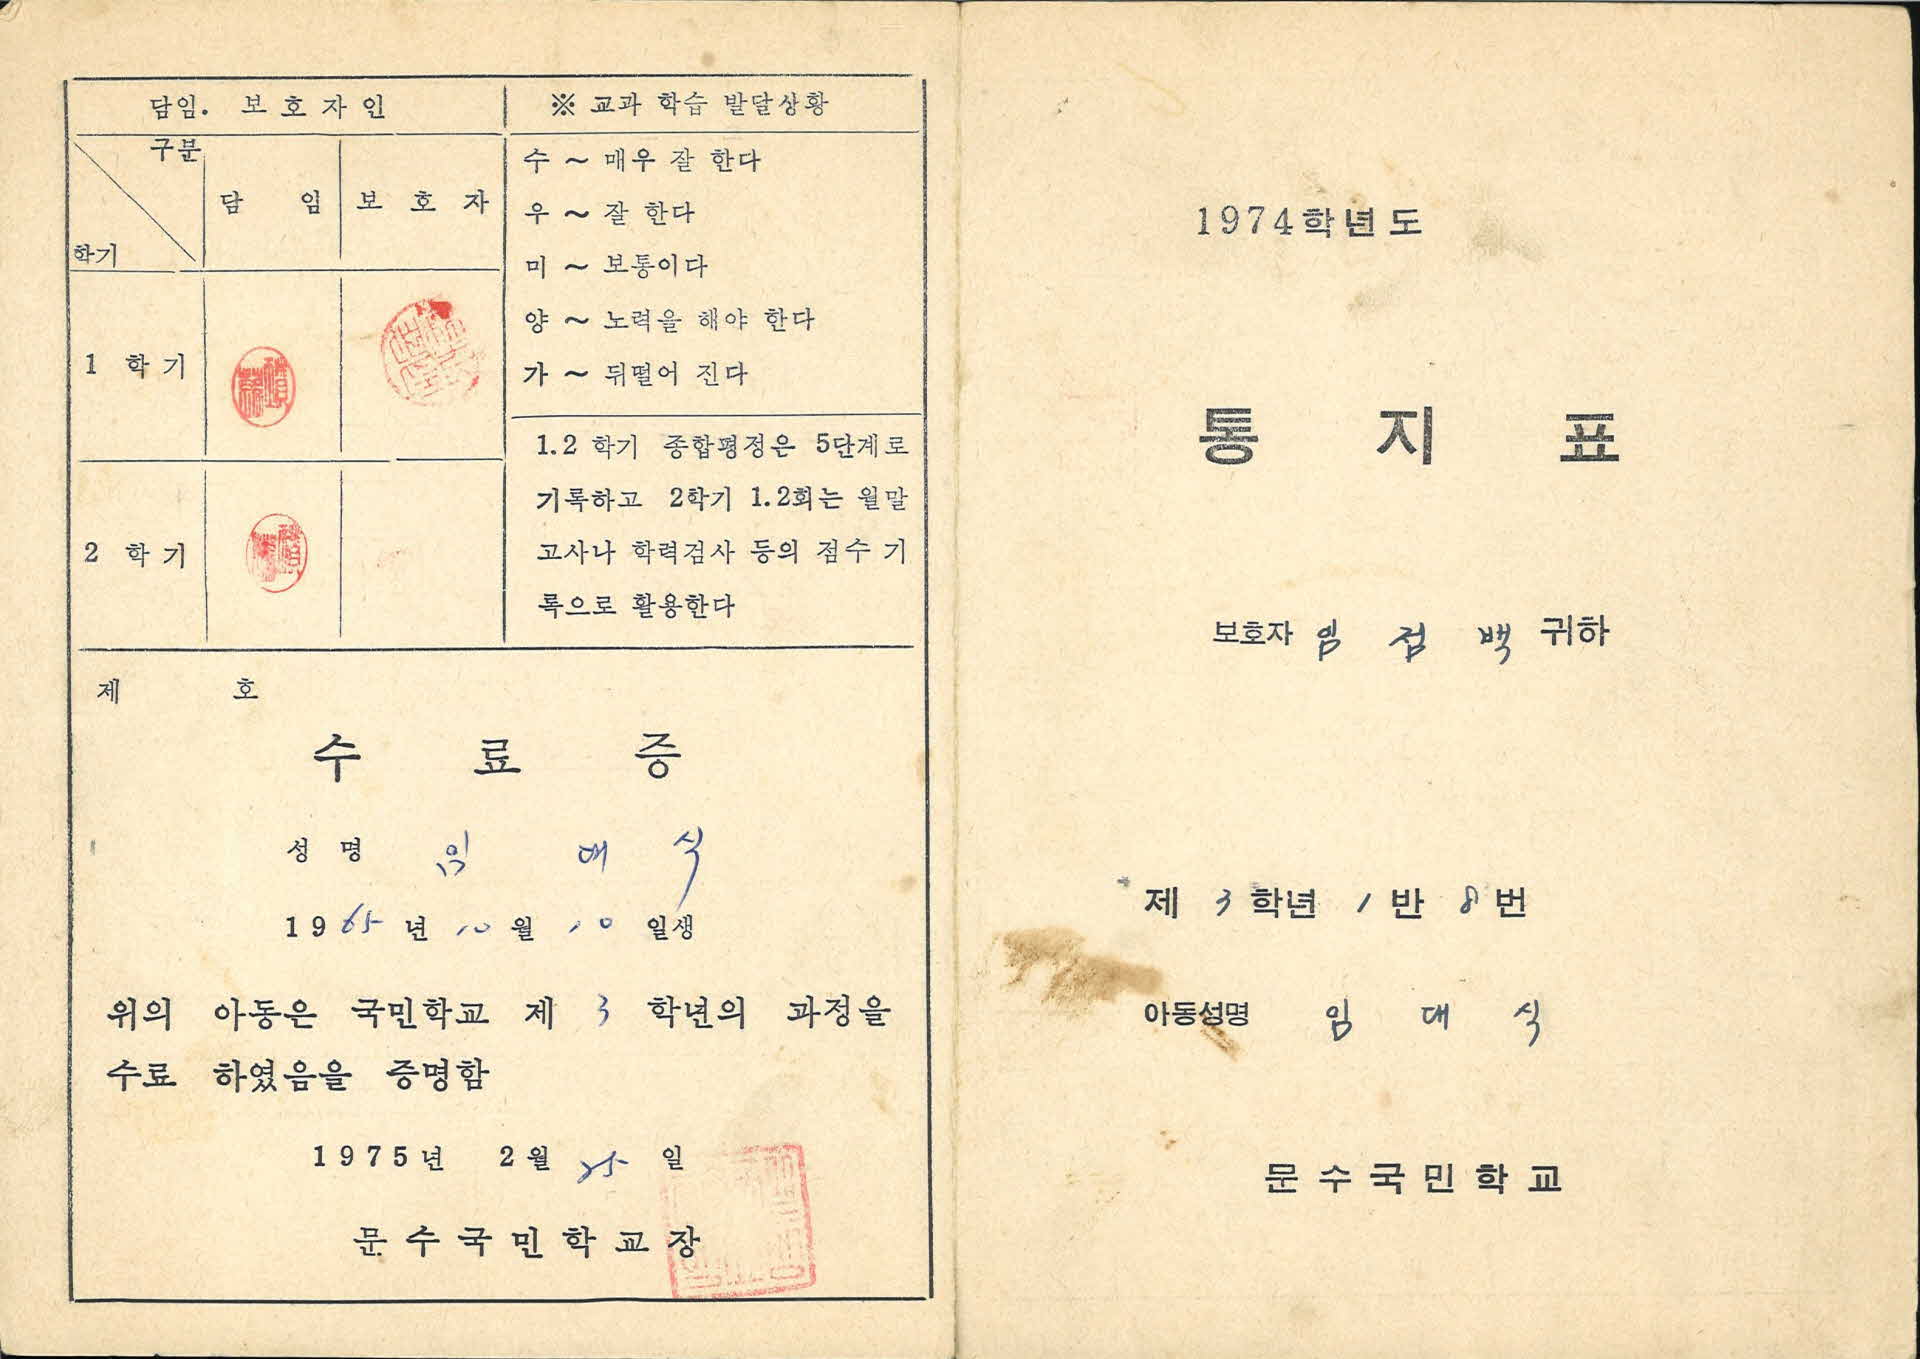 담임. 보호자인
구분
담 임 보 호 자
학기
1 학기
2 학기
※ 교과 학습 발달상황
수 ~ 매우 잘 한다
우 ~ 잘 한다
미 ~ 보통이다
양 ~ 노력을 해야 한다
가 ~ 뒤떨어 진다
1.2 학기 종합평정은 5단계로
기록하고 2학기 1.2회는 월말
고사나 학력검사 등의 점수 기
록으로 활용한다
제 호
수 료 증
성 명 임 대 식
1965년 10월 10일생
위의 아동은 국민학교 제 3 학년의 과정을
수료 하였음을 증명함
1975년 2월 25일
문수국민학교장
1974학년도
통 지 표
보호자 임 점 백 귀하
제 3학년 1반 8번
아동성명 임 대 식
문수국민학교